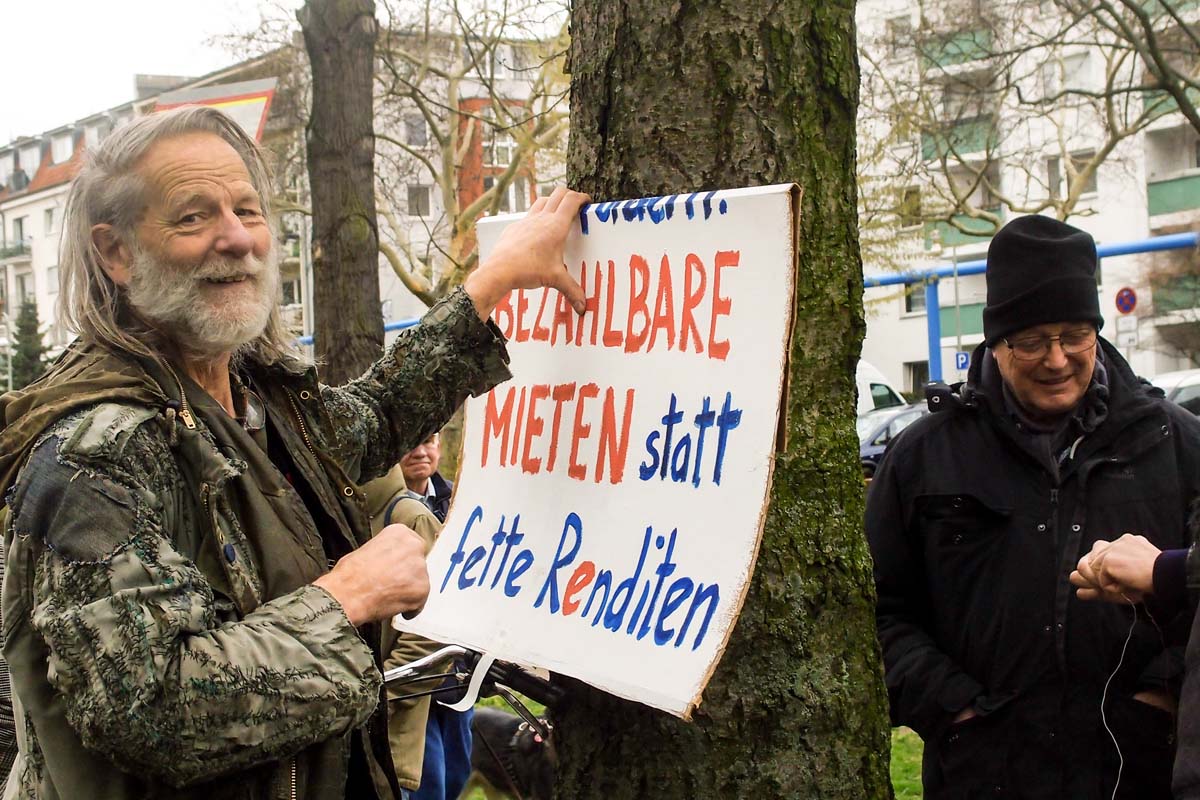 BEZAHLBARE
MIETEN statt
fette Renditen
P